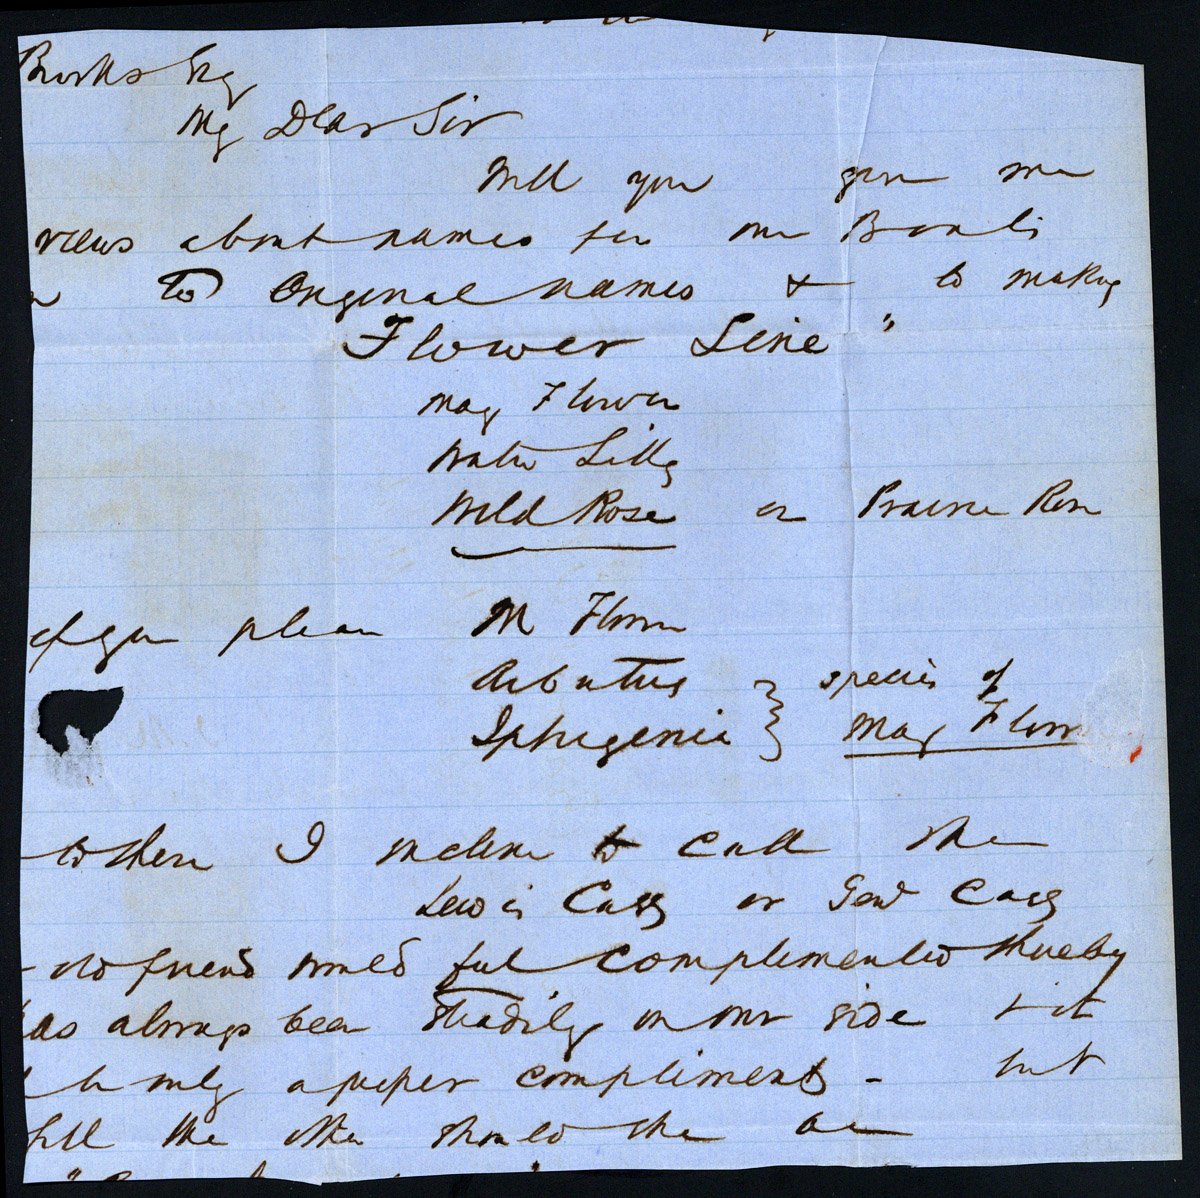 Brooks Esq
My Dear Sir
Will you give me
views about names for our Boats
to Original names & to making
Flower Line"
May Flower
Water Lilly
Wild Rose or Prairie Rose
if you please M Flower
Arbutus } species of
Iphigenia } May Flower
I incline to call the
Lewis Cass or Genl Cass
old friend would feel complimented thereby
has always been steadily on our side & it
be only a proper compliment - but
the other should she be